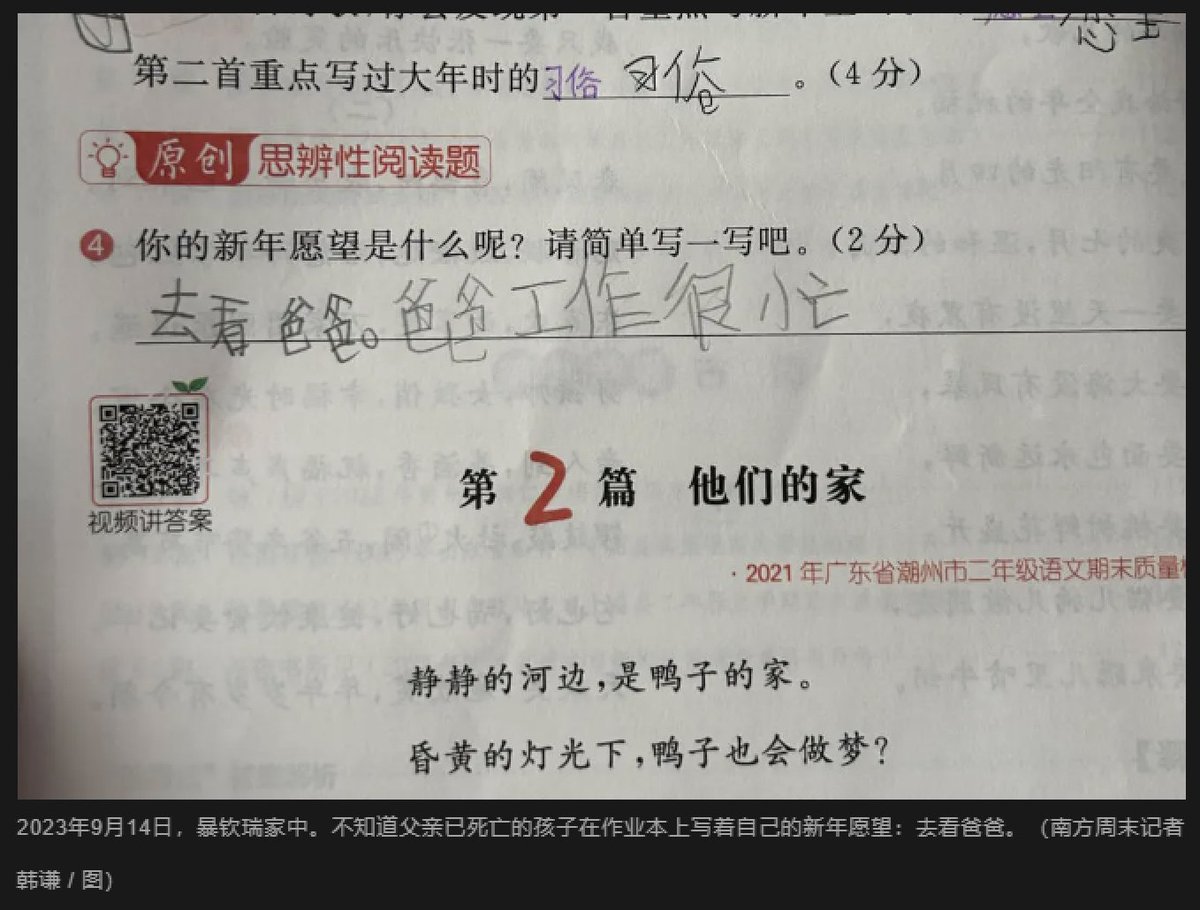 第二首重点写过大年时的习俗 习俗。（4 分）
原创 思辨性阅读题
4 你的新年愿望是什么呢？请简单写一写吧。（2 分）
去看爸爸。爸爸工作很忙
视频讲答案
第 2 篇 他们的家
·2021 年广东省潮州市二年级语文期末质量
静静的河边，是鸭子的家。
昏黄的灯光下，鸭子也会做梦？
2023年9月14日，暴钦瑞家中。不知道父亲已死亡的孩子在作业本上写着自己的新年愿望：去看爸爸。（南方周末记者
韩谦 / 图）